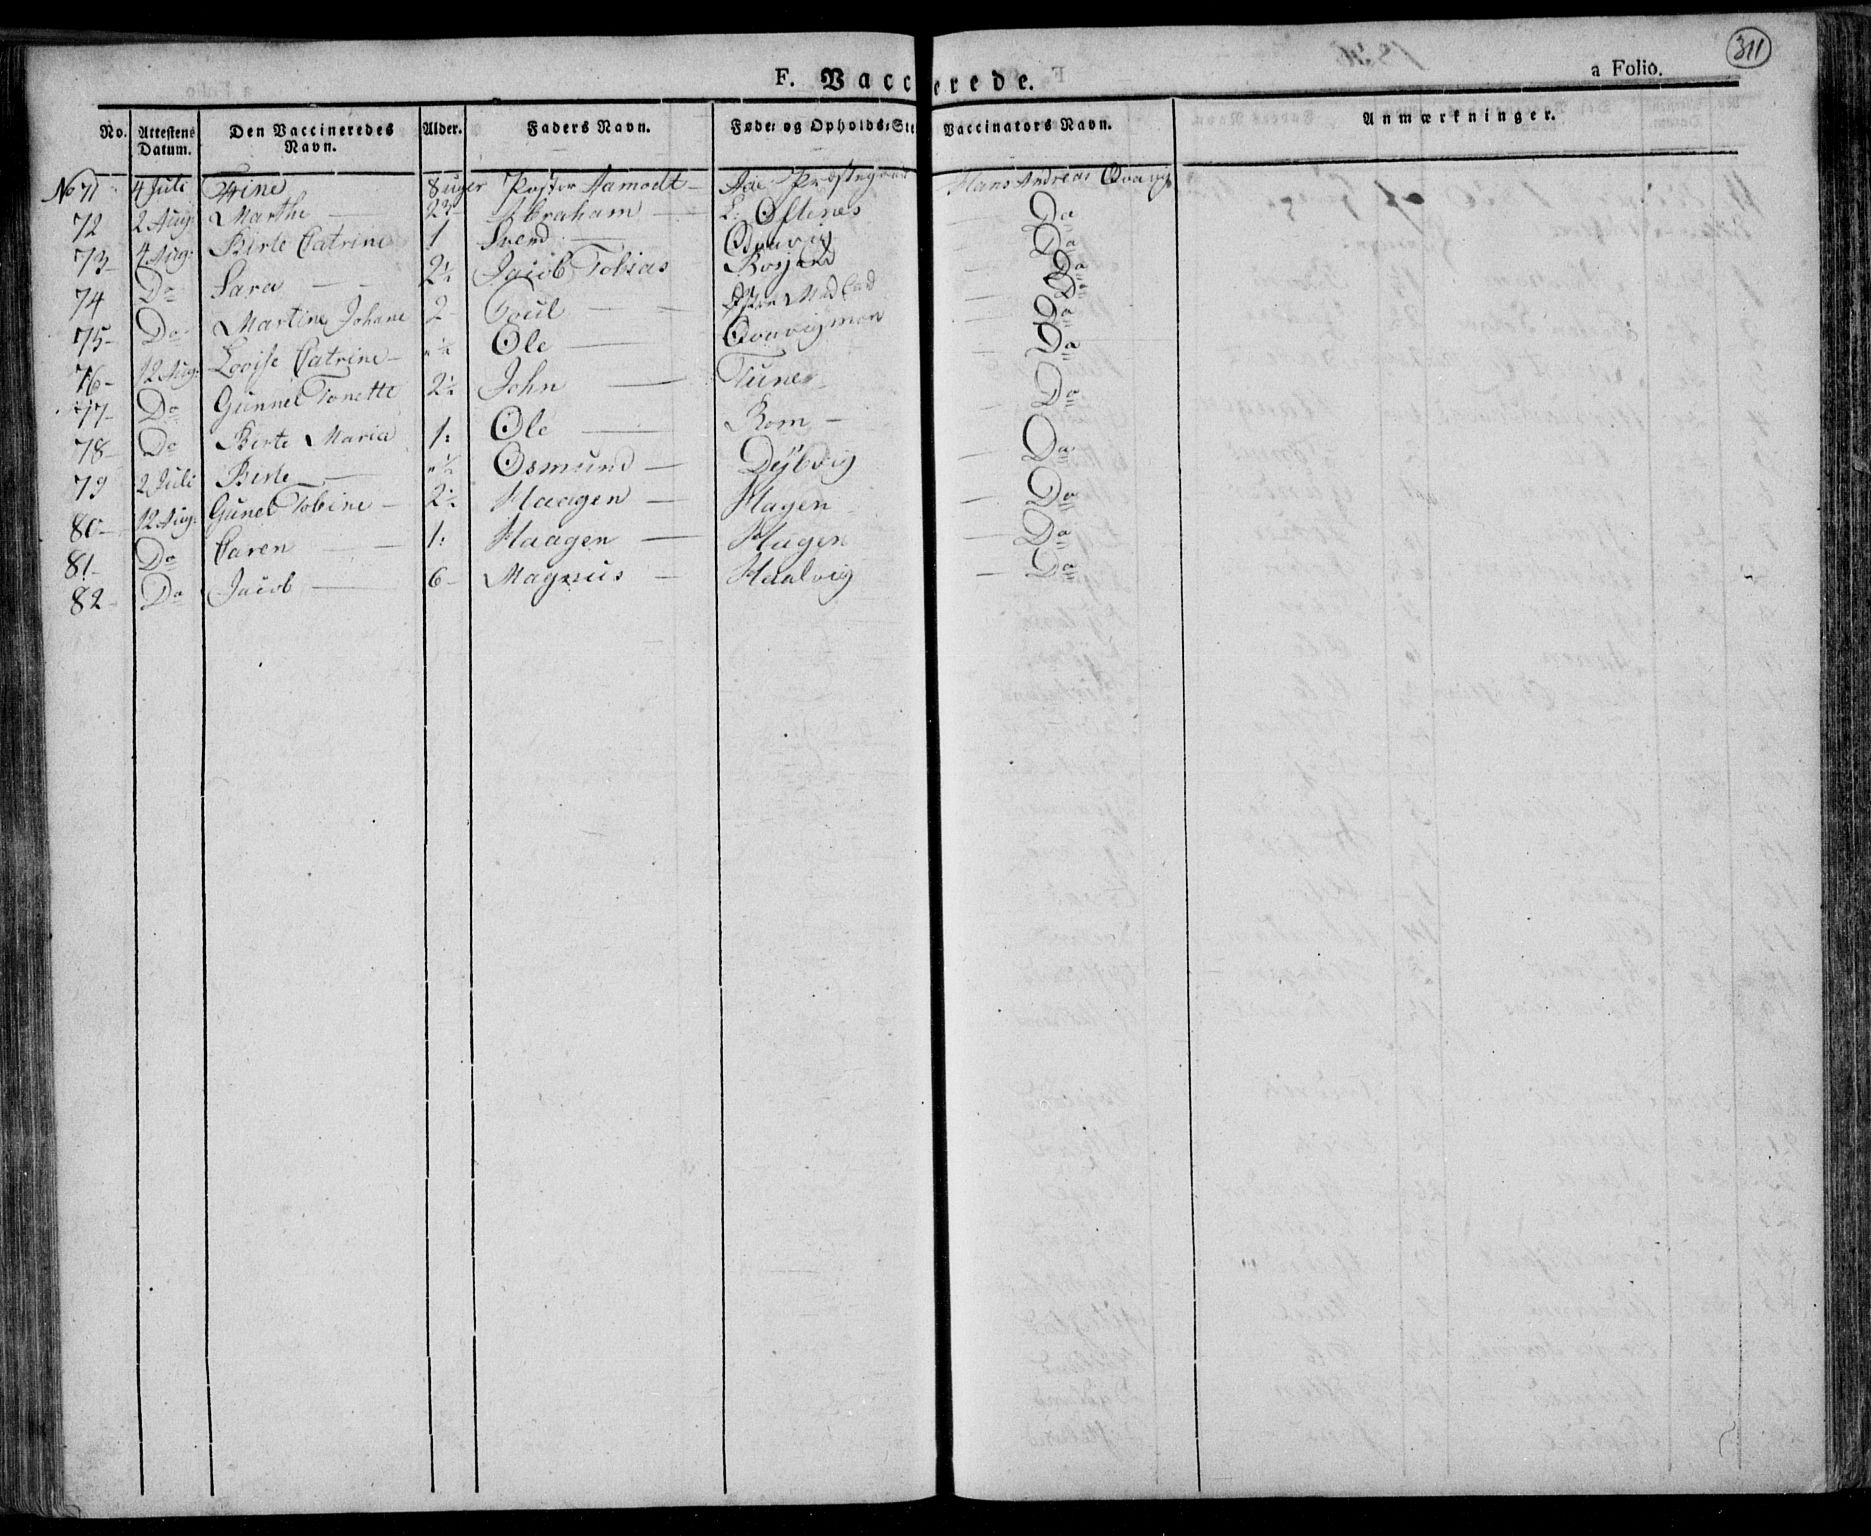 311
F. Vaccinerede.
a Folio.
No. Attestens Datum. Den Vaccineredes Navn. Alder. Faders Navn. Føde- og Opholds-Ste Vaccinators Navn. Anmærkninger.
No 71 4 Juli Trine 8 uger Pastor Aamodt Præstegaard Hans Andreas Qvavig
72 2 Aug: Marthe Abraham Oftenes Do
73 4 Aug: Birte Catrine 1 Svend Qvavig Do
74 Do Sara 2½ Jacob Tobias Do
75 Do Martine Johane 2 Poul Do
76 12 Aug: Lovise Catrine ½ Ole Qvavigmoen Do
77 Do Gunnel Tonette 2½ John Do
78 Do Birte Maria 1 Ole Rom Do
79 2 Juli Birte ½ Osmund Dybvig Do
80 12 Aug: Gunel Tobine 2½ Haagen Hagen Do
81 Do Caren 1 Haagen Hagen Do
82 Do Jacob 6 Magnus Haalvig Do